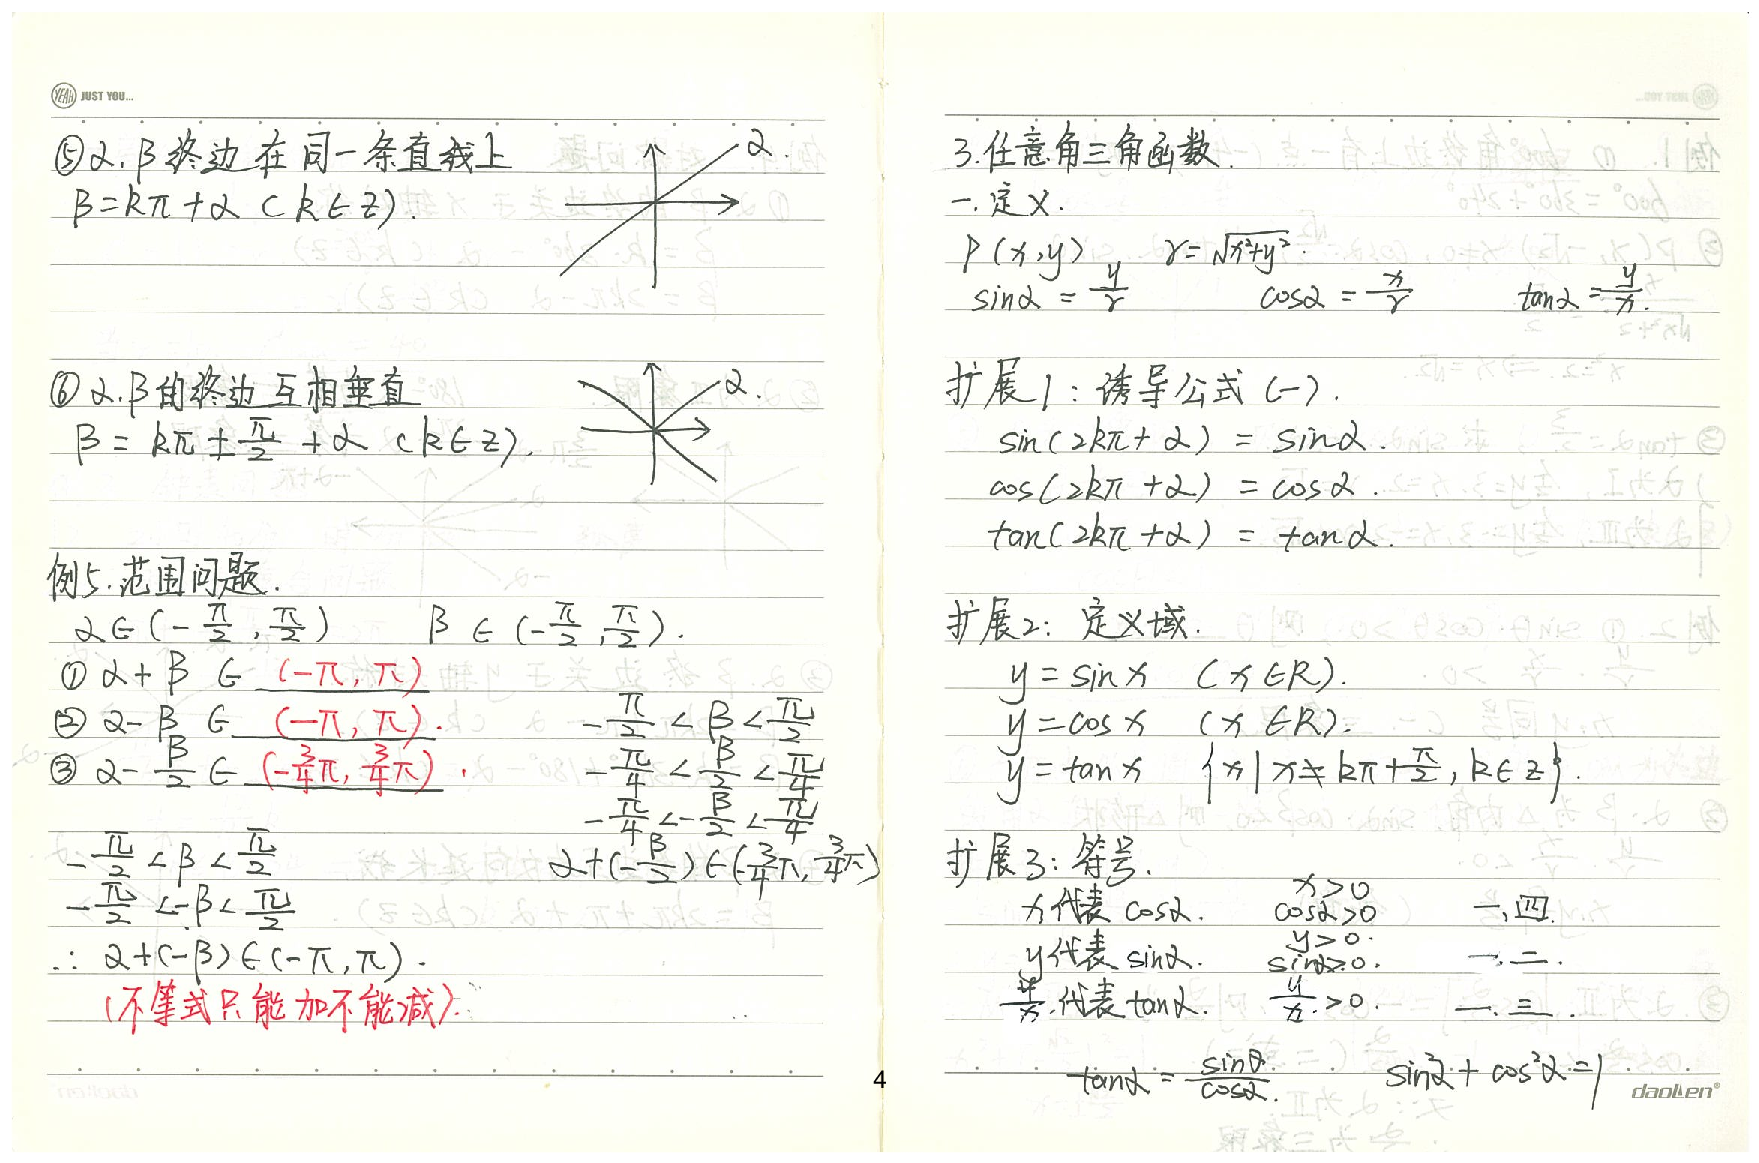 YEAH JUST YOU...
⑤α.β终边在同一条直线上
α.
β=kπ+α (k∈z).
⑥α.β的终边互相垂直
α.
β= kπ ± π/2 + α (k∈z).
例5.范围问题.
α∈(-π/2, π/2) β∈(-π/2, π/2).
①α+β∈ (-π, π)
②α-β∈ (-π, π).
③α-β/2∈ (-3/4π, 3/4π).
-π/2<β<π/2
-π/4<β/2<π/4
-π/4<-β/2<π/4
α+(-β/2)∈(-3/4π, 3/4π)
-π/2<β<π/2
-π/2<-β<π/2
∴ α+(-β)∈(-π,π).
(不等式只能加不能减).
4
3.任意角三角函数.
一.定义.
P(x,y) r=√x²+y².
sinα = y/r cosα = x/r tanα = y/x.
扩展1: 诱导公式(一).
sin(2kπ+α) = sinα.
cos(2kπ+α) = cosα.
tan(2kπ+α) = tanα.
扩展2: 定义域.
y=sinx (x∈R).
y=cosx (x∈R).
y=tanx {x|x≠kπ+π/2, k∈z}.
扩展3: 符号.
x代表cosα. x>0 cosα>0 一,四.
y代表sinα. y>0. sinα>0. 一.二.
y/x.代表tanα. y/x>0. 一.三.
tanα = sinθ/cosα. sin²α+cos²α=1
daolen®